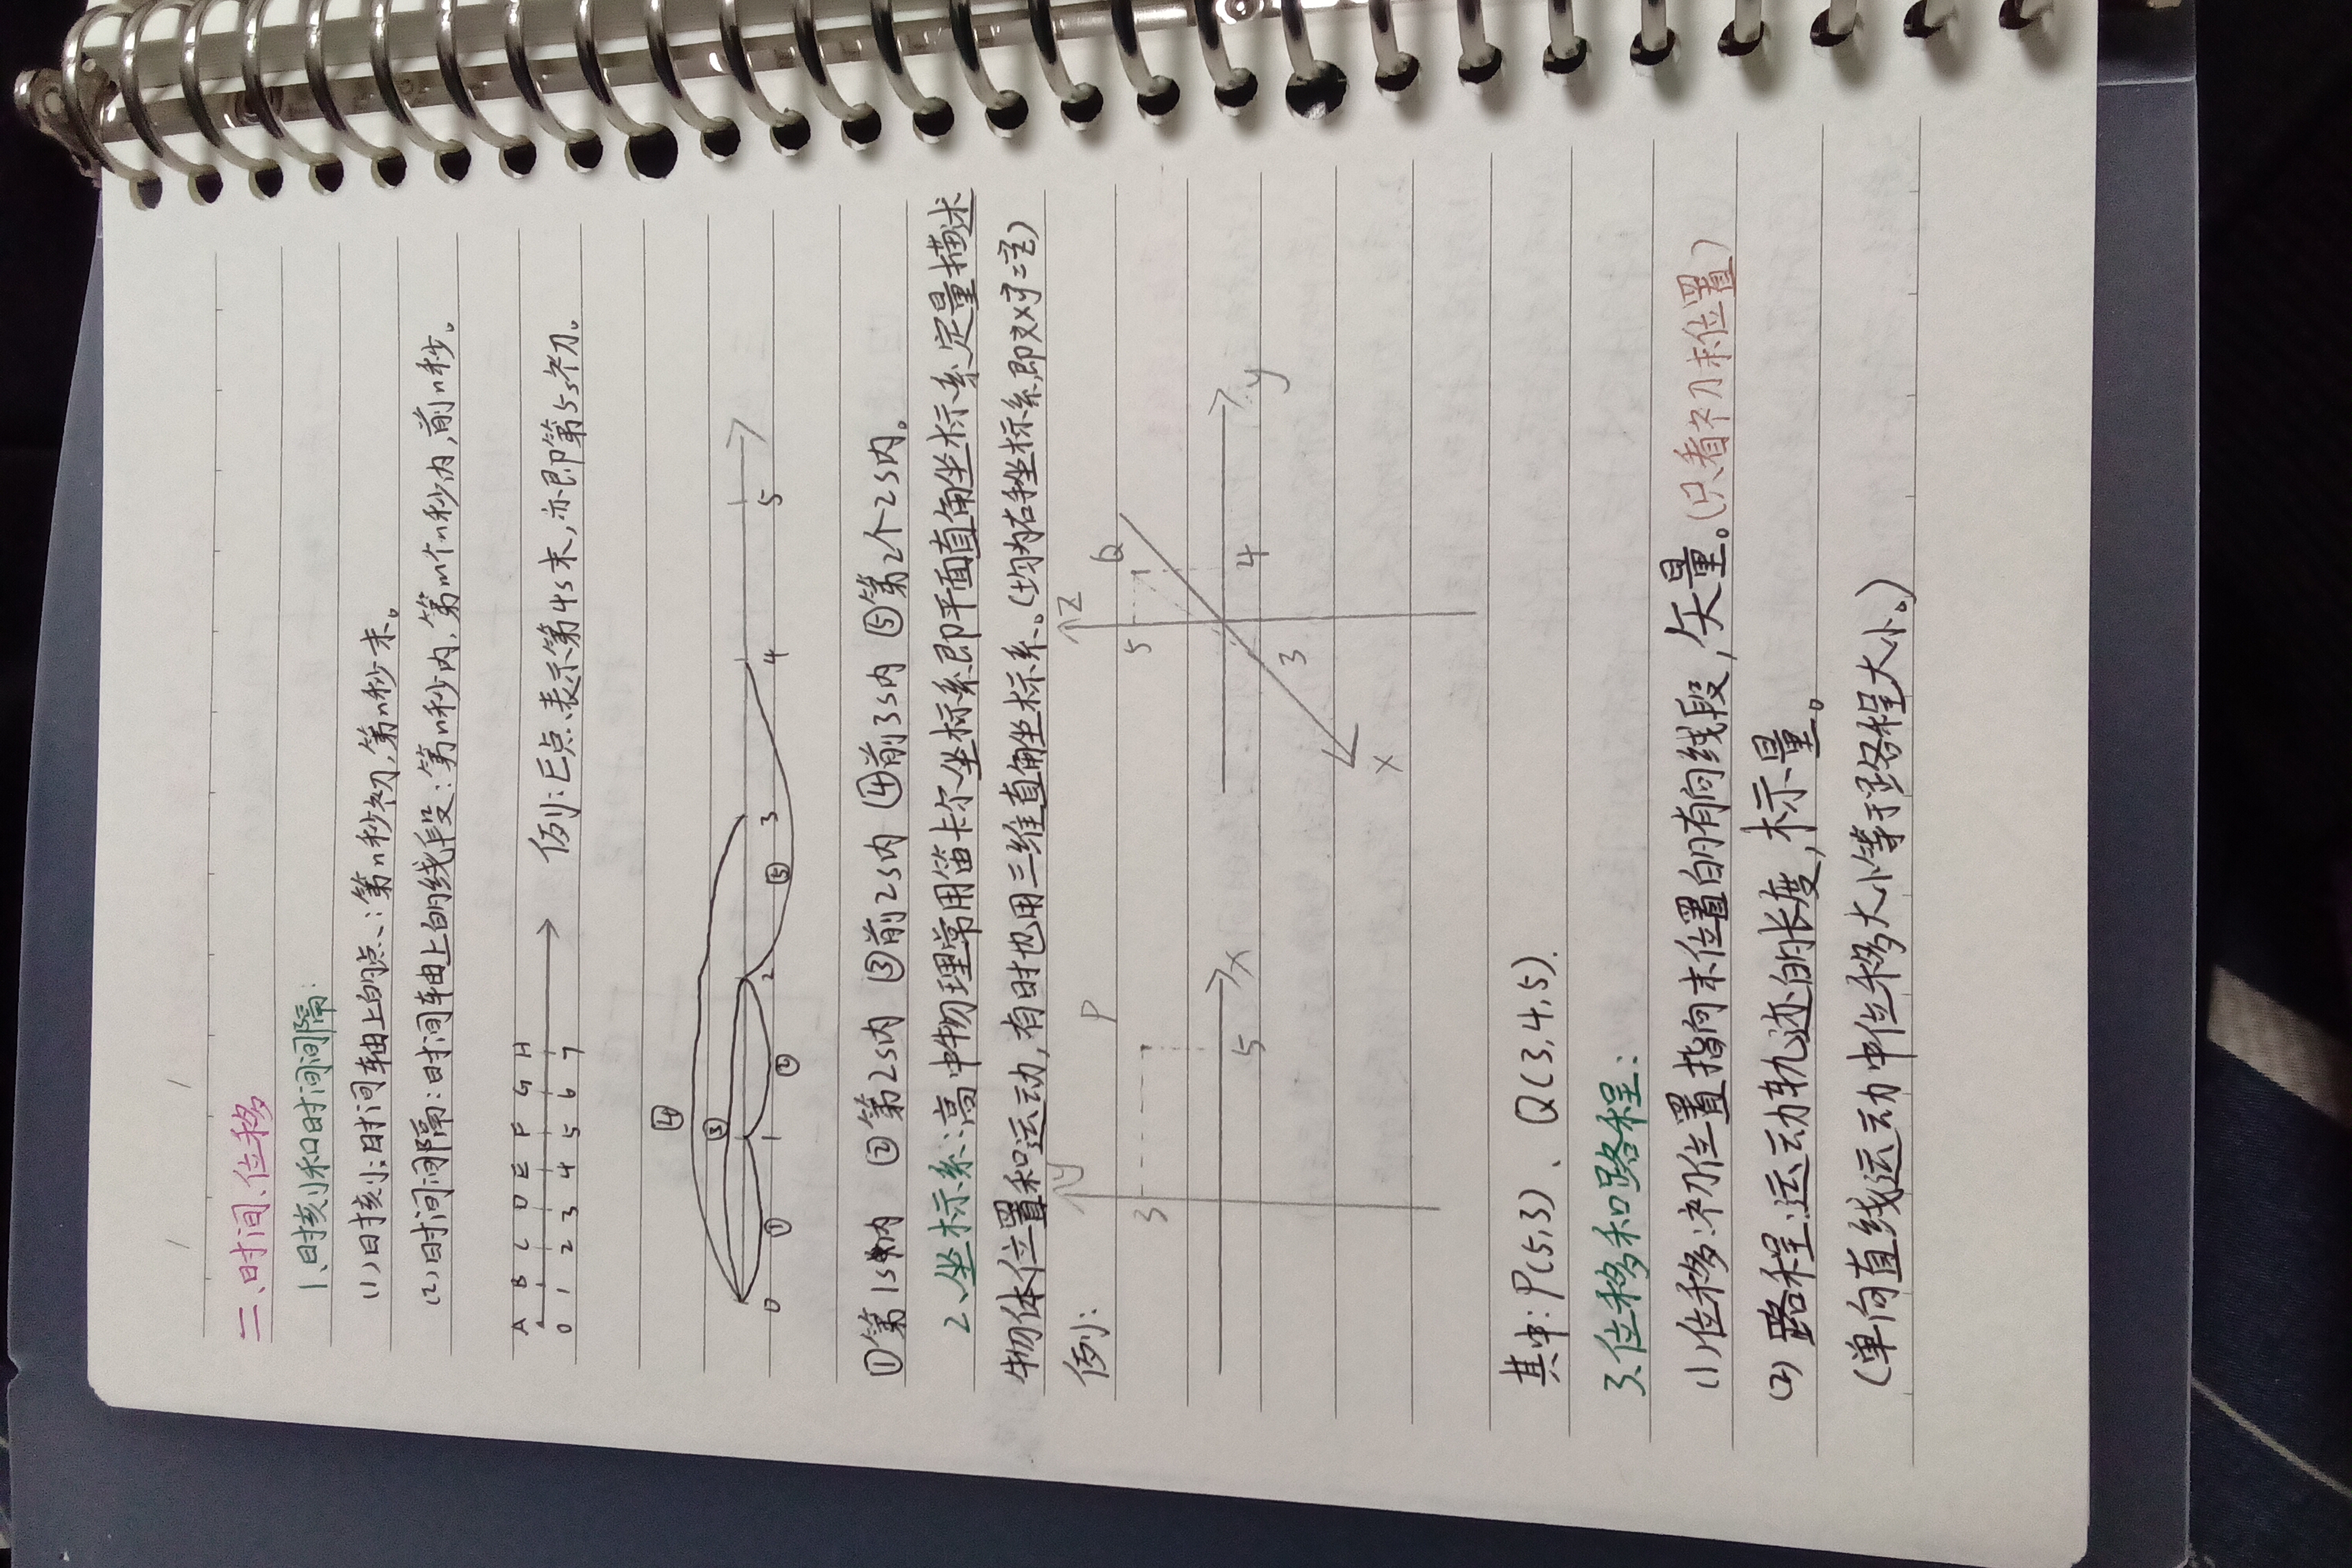 二、时间、位移
1、时刻和时间间隔:
(1)时刻:时间轴上的点:第n秒初,第n秒末。
(2)时间间隔:时间轴上的线段:第n秒内,第m个n秒内,前n秒。
A B C D E F G H
0 1 2 3 4 5 6 7
例:E点表示第4s末,亦即第5s初。
④
③
0 1 2 3 4 5
① ② ⑤
①第1s内 ②第2s内 ③前2s内 ④前3s内 ⑤第2个2s内。
2、坐标系:高中物理常用笛卡尔坐标系即平面直角坐标系定量描述
物体位置和运动,有时也用三维直角坐标系。(均为右手坐标系,即对于z)
例:
y P
3
5 x
z Q
5
4 y
3
x
其中:P(5,3)、Q(3,4,5).
3、位移和路程:
(1)位移:初位置指向末位置的有向线段,矢量。(只看初末位置)
(2)路程:运动轨迹的长度,标量。
(单向直线运动中位移大小等于路程大小。)